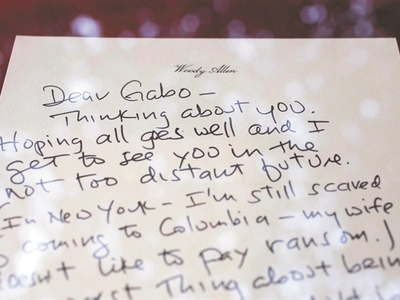 Woody Allen
Dear Gabo —
Thinking about you.
Hoping all goes well and I
get to see you in the
not too distant future.
(In New York — I'm still scared
coming to Columbia — my wife
doesn't like to pay ransom.)
Thing about being